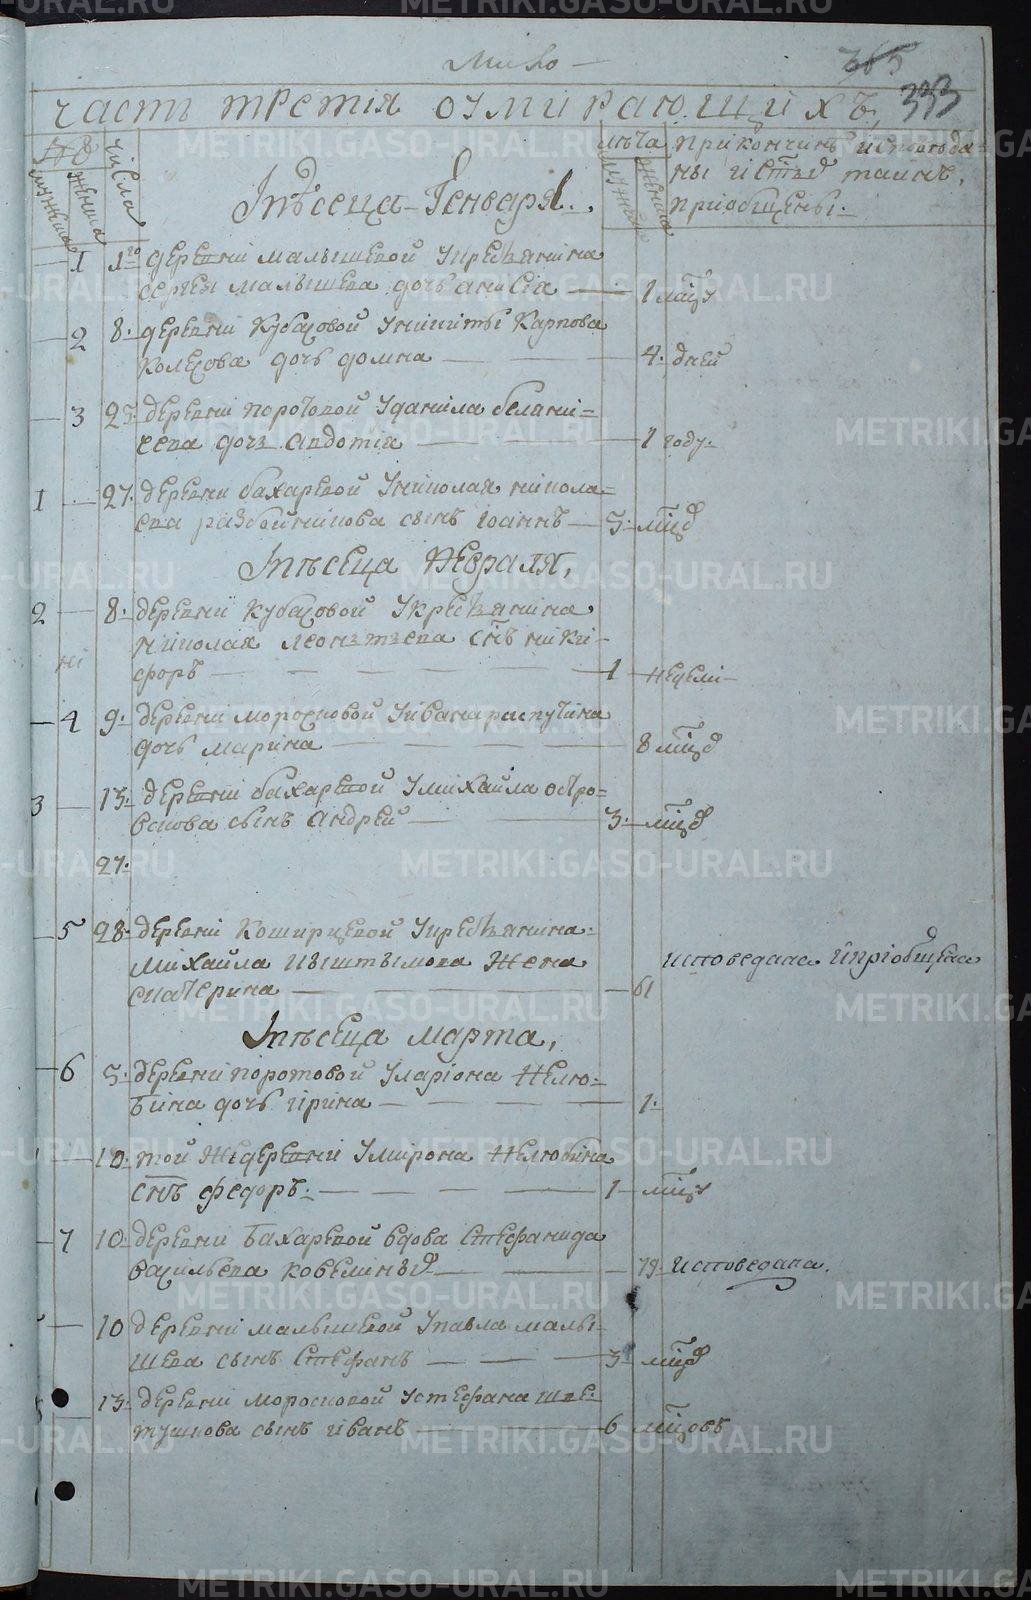 365
333
часть третія оумирающихъ,
№
мужеска
женска
числа
лѣта
мужеска
женска
при кончинѣ исповѣда-
ны и стыхъ таинъ,
приобщены.
Мѣсеца Генваря.
1 1го деревни малышевой укресьянина
сергея малышева дочь анисіа 1 мцу
2 8. деревни Кубасовой Уникиты Карпова
Колесова дочь домна 4. дней
3 23 деревни поротовой Уданила белани=
чева дочь авдотіа 1 году.
1 27. деревни бахаревой Униколая никола=
ева разбойникова сынъ iоаннъ 3. мцд
Мѣсеца Февраля,
2 8. деревни кубасовой Укресьянина
николая леонтьева снъ ники-
форъ 1 недели
4 9. деревни моросковой Уивана распутина
дочь марина 8 мцд
3 13. деревни бахаревой Умихайла остро=
вскова сынъ андрей 3. мцд
27.
5 28. деревни Коширцевой Укресьянина
михайла кыштымова жена
екатерина 61 исповедана ипріобщена
Мѣсеца марта,
6 3. деревни поротовой Уларіона нелю=
бина дочь ирина 1.
10. той жедеревни Умирона нелюбина
снъ федоръ. 1 мцу
7 10. деревни бахаревой вдова стефанида
васильева кобелиныхъ 79. исповедана.
10 деревни малышевой Упавла малы-
шева сынъ стефанъ 3 мцд
13. деревни моросковой Устефана шве-
тушкова сынъ иванъ 6 мцовъ
METRIKI.GASO-URAL.RU